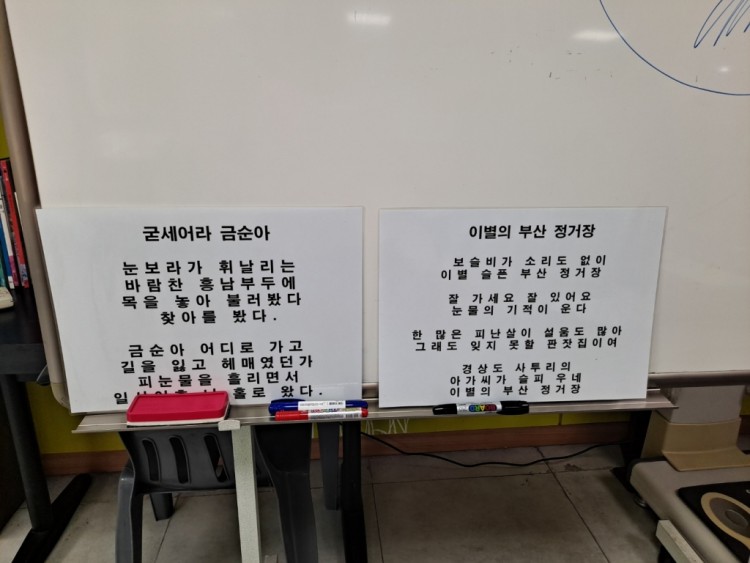 굳세어라 금순아
눈보라가 휘날리는
바람찬 흥남부두에
목을 놓아 불러봤다
찾아를 봤다.
금순아 어디로 가고
길을 잃고 헤매였던가
피눈물을 흘리면서
홀로 왔다.
이별의 부산 정거장
보슬비가 소리도 없이
이별 슬픈 부산 정거장
잘 가세요 잘 있어요
눈물의 기적이 운다
한 많은 피난살이 설움도 많아
그래도 잊지 못할 판잣집이여
경상도 사투리의
아가씨가 슬피 우네
이별의 부산 정거장